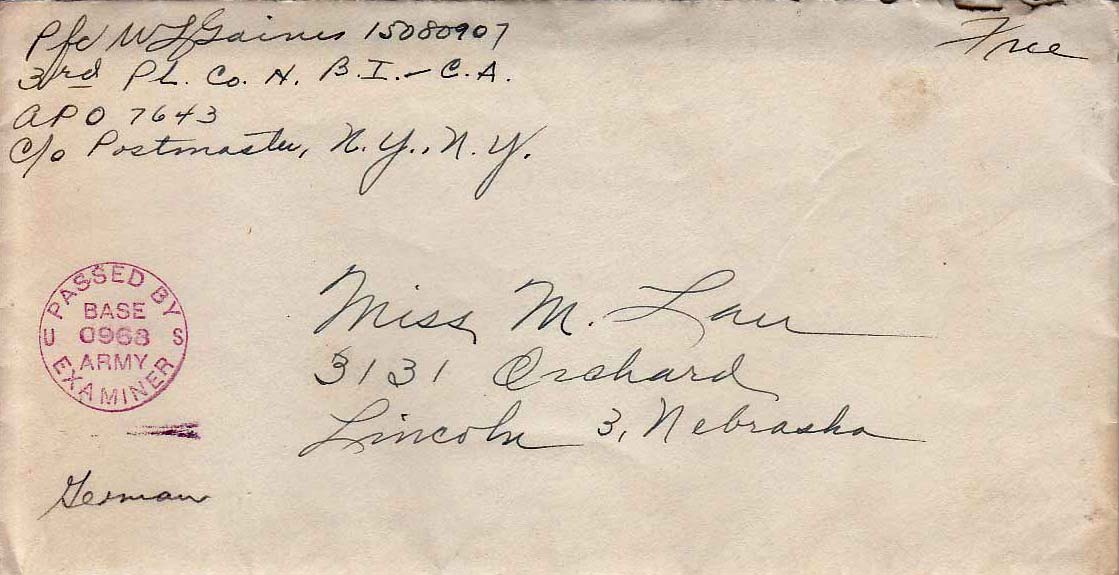 Pfc W L Gaines 15080907
Free
3rd Pl. Co. N. B.I. - C.A.
APO 7643
c/o Postmaster, N.Y., N.Y.
PASSED BY
BASE
U 0968 S
ARMY
EXAMINER
Miss M. Lau
3131 Orchard
Lincoln 3, Nebraska
German